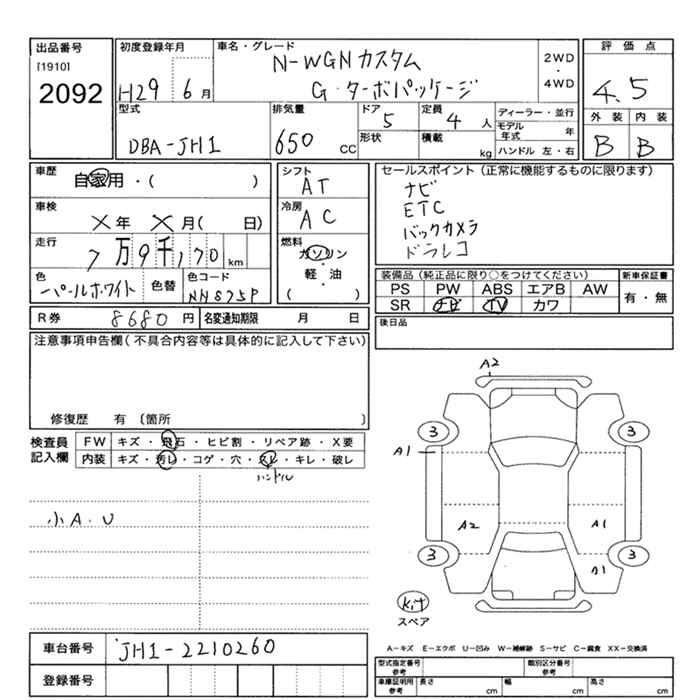 出品番号
[1910]
2092
初度登録年月
H29 6月
車名・グレード
N-WGNカスタム
G・ターボパッケージ
2WD
・
4WD
評価点
4.5
外装 内装
B B
型式
DBA-JH1
排気量
650 cc
ドア
5
定員
4 人
形状
積載
kg
ディーラー・並行
モデル年式 年
ハンドル 左・右
車歴
自家用・( )
車検
X年 X月( 日)
走行
7万9千,170 km
色
パールホワイト
色替
色コード
NH875P
シフト
AT
冷房
AC
燃料
ガソリン
・
軽・油
( )
セールスポイント(正常に機能するものに限ります)
ナビ
ETC
バックカメラ
ドラレコ
装備品(純正品に限り○をつけてください)
PS PW ABS エアB AW
SR ナビ TV カワ
新車保証書
有・無
R券 8680円
名変通知期限 月 日
後日品
注意事項申告欄(不具合内容等は具体的に記入して下さい)
修復歴 有 〔箇所 〕
検査員記入欄
FW キズ・飛石・ヒビ割・リペア跡・X要
内装 キズ・汚レ・コゲ・穴・スレ・キレ・破レ
ハンドル
小A.U
A2
3 3
A1
A2 A1
3 3
A1
kit
スペア
車台番号
JH1-2210260
登録番号
A−キズ E−エクボ U−凹み W−補修跡 S−サビ C−腐食 XX−交換済
型式指定番号 参考
類別区分番号 参考
車庫証明用 参考
長さ cm
幅 cm
高さ cm